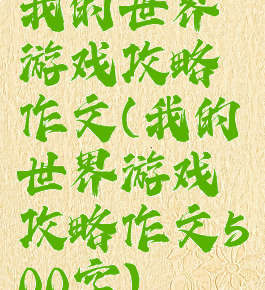 我的世界
游戏攻略
作文(我的
世界游戏
攻略作文5
00字)